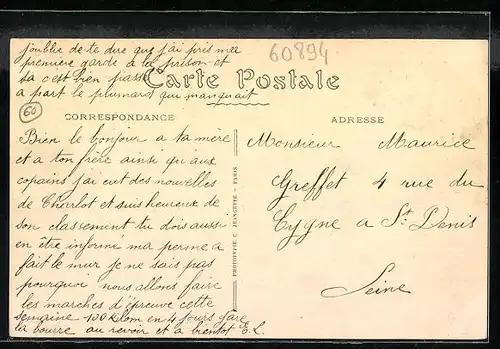 joublie de te dire que j'ai pris ma
première garde a la prison et
sa c'est bien passé
a part le plumard qui manquait
60894
Carte Postale
60
CORRESPONDANCE
ADRESSE
Bien le bonjour a ta mère
et a ton frère ainsi qu'aux
copains j'ai eut des nouvelles
de Charlot et suis heureux de
son classement tu dois aussi
en être informé ma perme a
fait le mur je ne sais pas
pourquoi nous allons faire
les marches d'épreuve cette
semaine 100 Klom en 4 jours gare
la bourre au revoir et a bientot E. L.
PHOTOTYPIE C. JEANGETTE - PARIS
Monsieur Maurice
Greffet 4 rue du
Cygne a St Denis
Seine